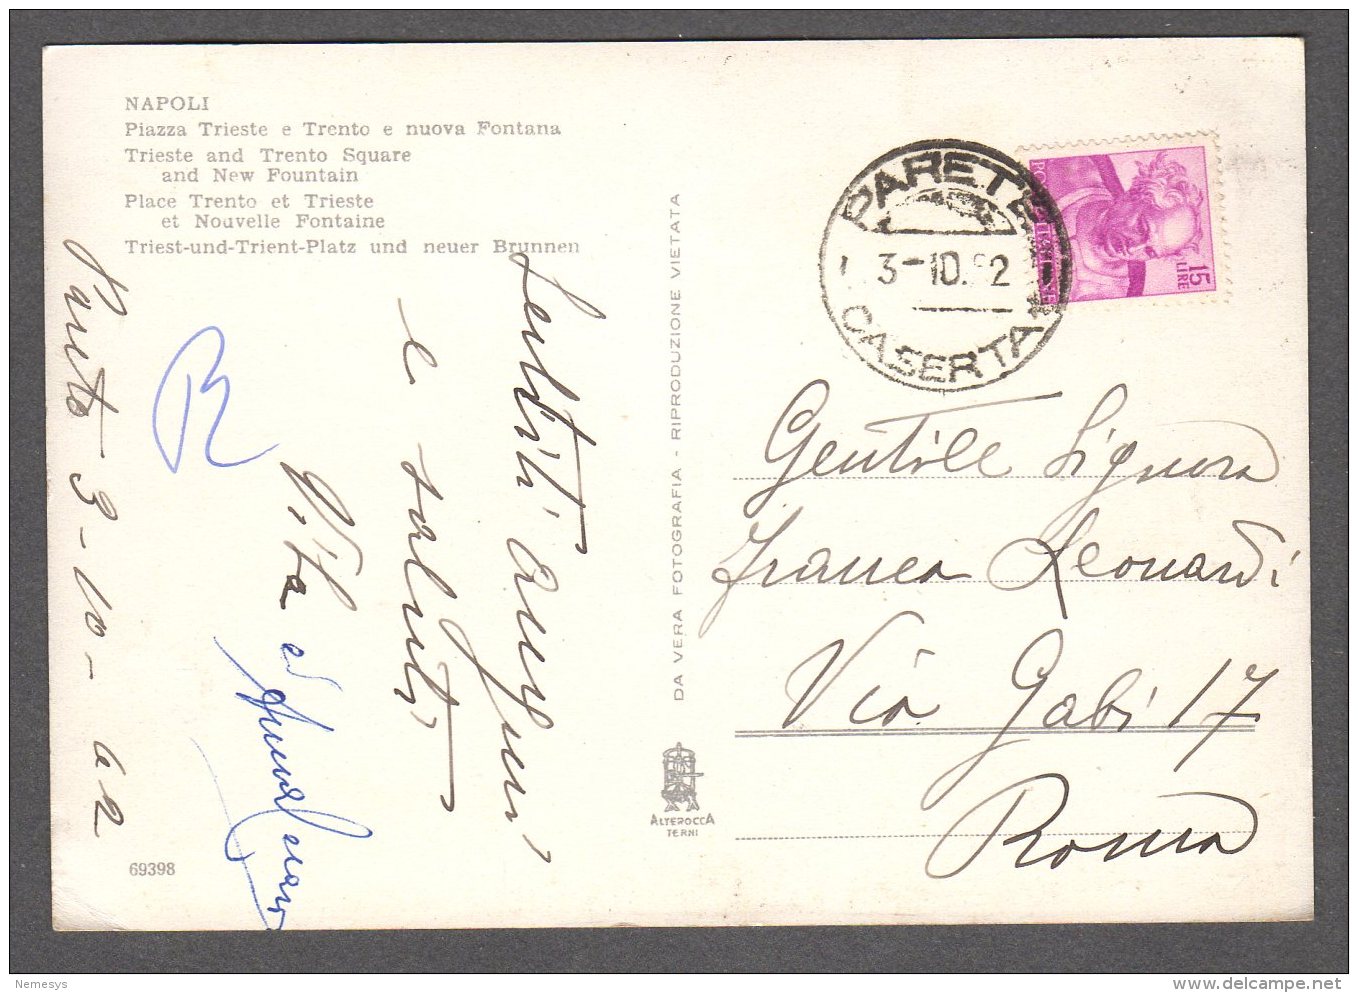 NAPOLI
Piazza Trieste e Trento e nuova Fontana
Trieste and Trento Square
and New Fountain
Place Trento et Trieste
et Nouvelle Fontaine
Triest-und-Trient-Platz und neuer Brunnen
Parete 3-10-62
Sentiti auguri
e saluti
ed
69398
DA VERA FOTOGRAFIA - RIPRODUZIONE VIETATA
ALTEROCCA
TERNI
PARETE
3-10.62
CASERTA
15
LIRE
Gentile Signora
Franca Leonardi
Via Gabi 17
Roma
Nemesys
www.delcampe.net